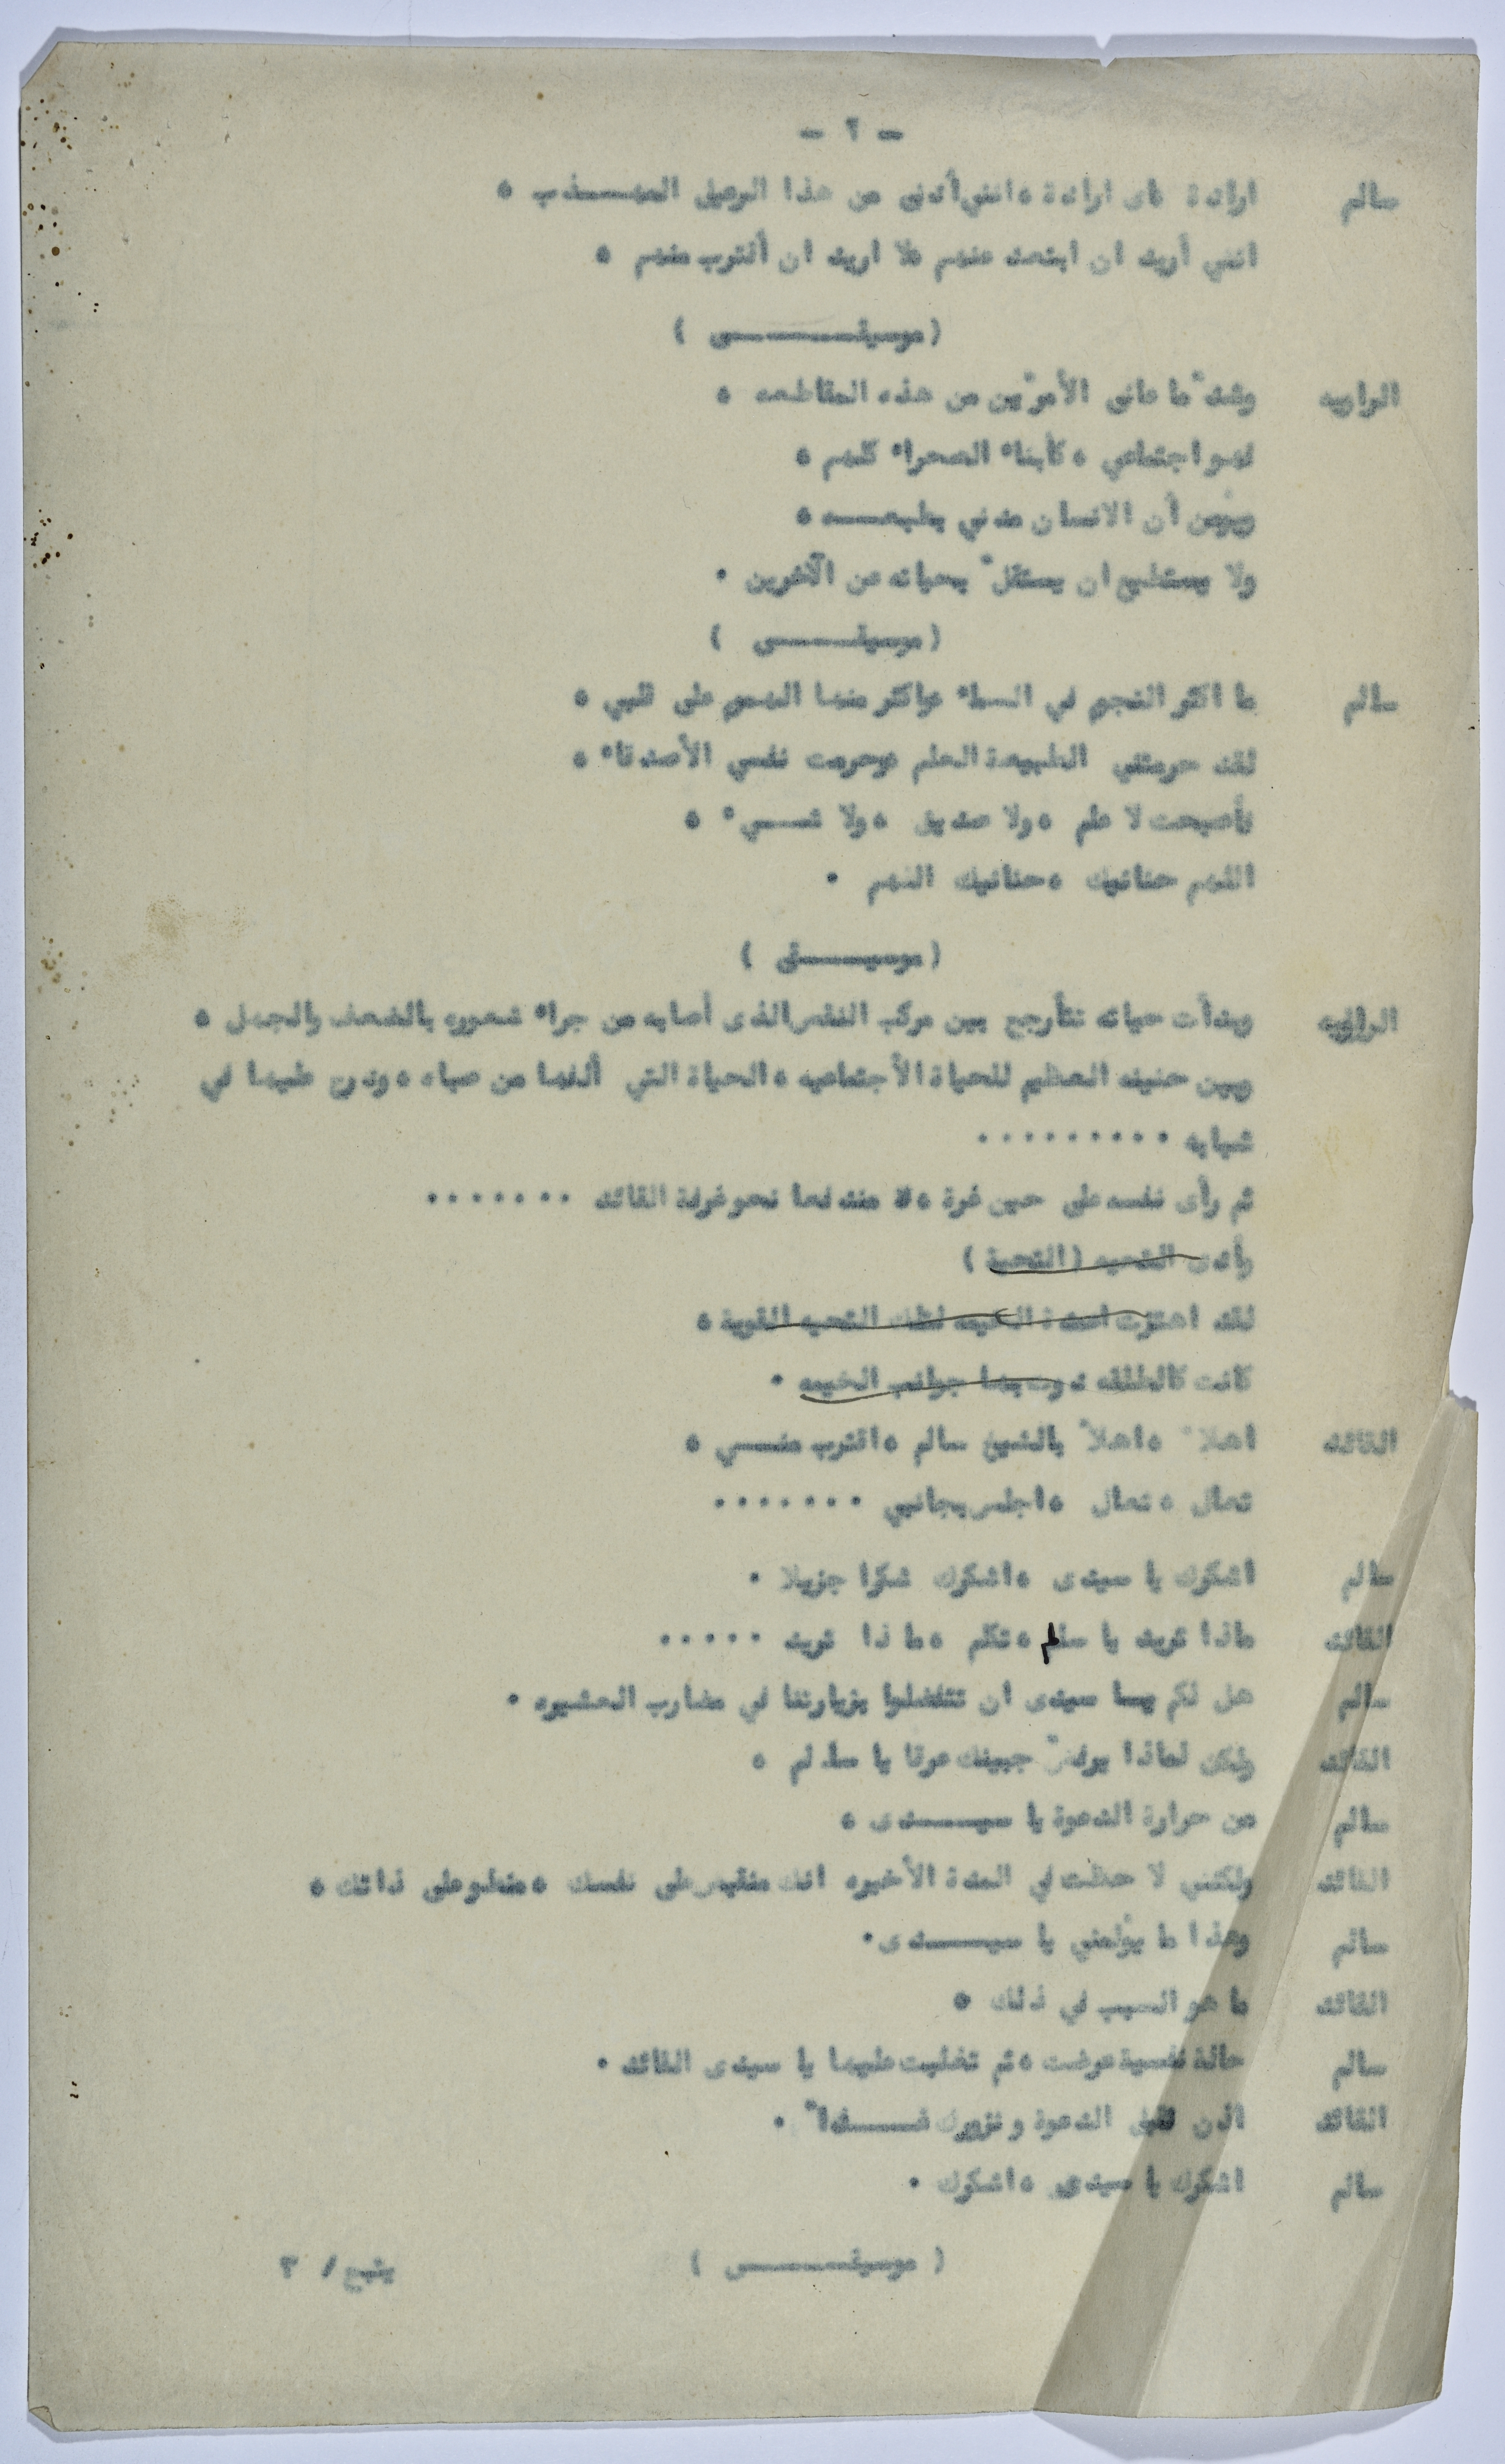 - ٢ -
سالم ارادة مای ارادة ، انني أدنى من هذا الرعيل المهـــذب ،
انني أريد ان ابتعد عنهم ملا اريد ان أقترب منهم ،
( موسيقـــــى )
الراويه وشدّ ما عانى الأمرّين من هذه المقاطعه ،
فهو اجتماعي ، كأبناء الصحراء كلهم ،
ويؤمن أن الانسان مدني بطبعـــه ،
ولا يستطيع ان يستقلّ بحياته عن الآخرين .
( موسيقـــى )
سالم ما اكثر النجوم في السماء واكثر منها الهموم على قلبي ،
لقد حرمتني الطبيعة العلم وحرمت نفسي الأصدقاء ،
فأصبحت لا علم ، ولا صديق ، ولا شـــيء ،
اللهم حنانيك ، حنانيك اللهم .
( موسيـــقى )
الراويه وبدأت حياته تتأرجح بين مركب النقص الذى أصابه من جراء شعوره بالضعف والجهل ،
وبين حنينه العظيم للحياة الأجتماعيه ، الحياة التي ألفها من صباه ، ودرج عليها في
شبابه .........
ثم رأى نفسه على حين غرة ، مندفعا نحو غرفة القائد .......
وأدى التحيه ( التحية )
لقد اهتزت اعمدة الخيمه لتلك التحيه القوية ،
كانت كالطلقه دوت بها جوانب الخيمه .
القائد اهلاً ، اهلاً بالشيخ سالم ، اقترب منـــي ،
تعال ، تعال ، اجلس بجانبي .......
سالم اشكرك يا سيدى ، اشكرك شكرا جزيلا .
القائد ماذا تريد يا سالم ، تكلم ، ماذا تريد .....
سالم هل لكم يـا سيدى ان تتفضلوا بزيارتنا في مضارب العشيره .
القائد ولكن لماذا يرفضّ جبينك عرقا يا سالم ،
سالم من حرارة الدعوة يا سيـــدى ،
القائد ولكنني لاحظت في المدة الأخيره انك منقبض على نفسك ، منطو على ذاتك ،
سالم وهذا ما يؤلمني يا سيـــدى .
القائد ما هو السبب في ذلك ،
سالم حالة نفسية عرضت ، ثم تغلبت عليها يا سيدى القائد .
القائد اذن نقبل الدعوة ونزورك غـــداً .
سالم اشكرك يا سيدى ، اشكرك .
( موسيقـــى ) يتبع / ٣